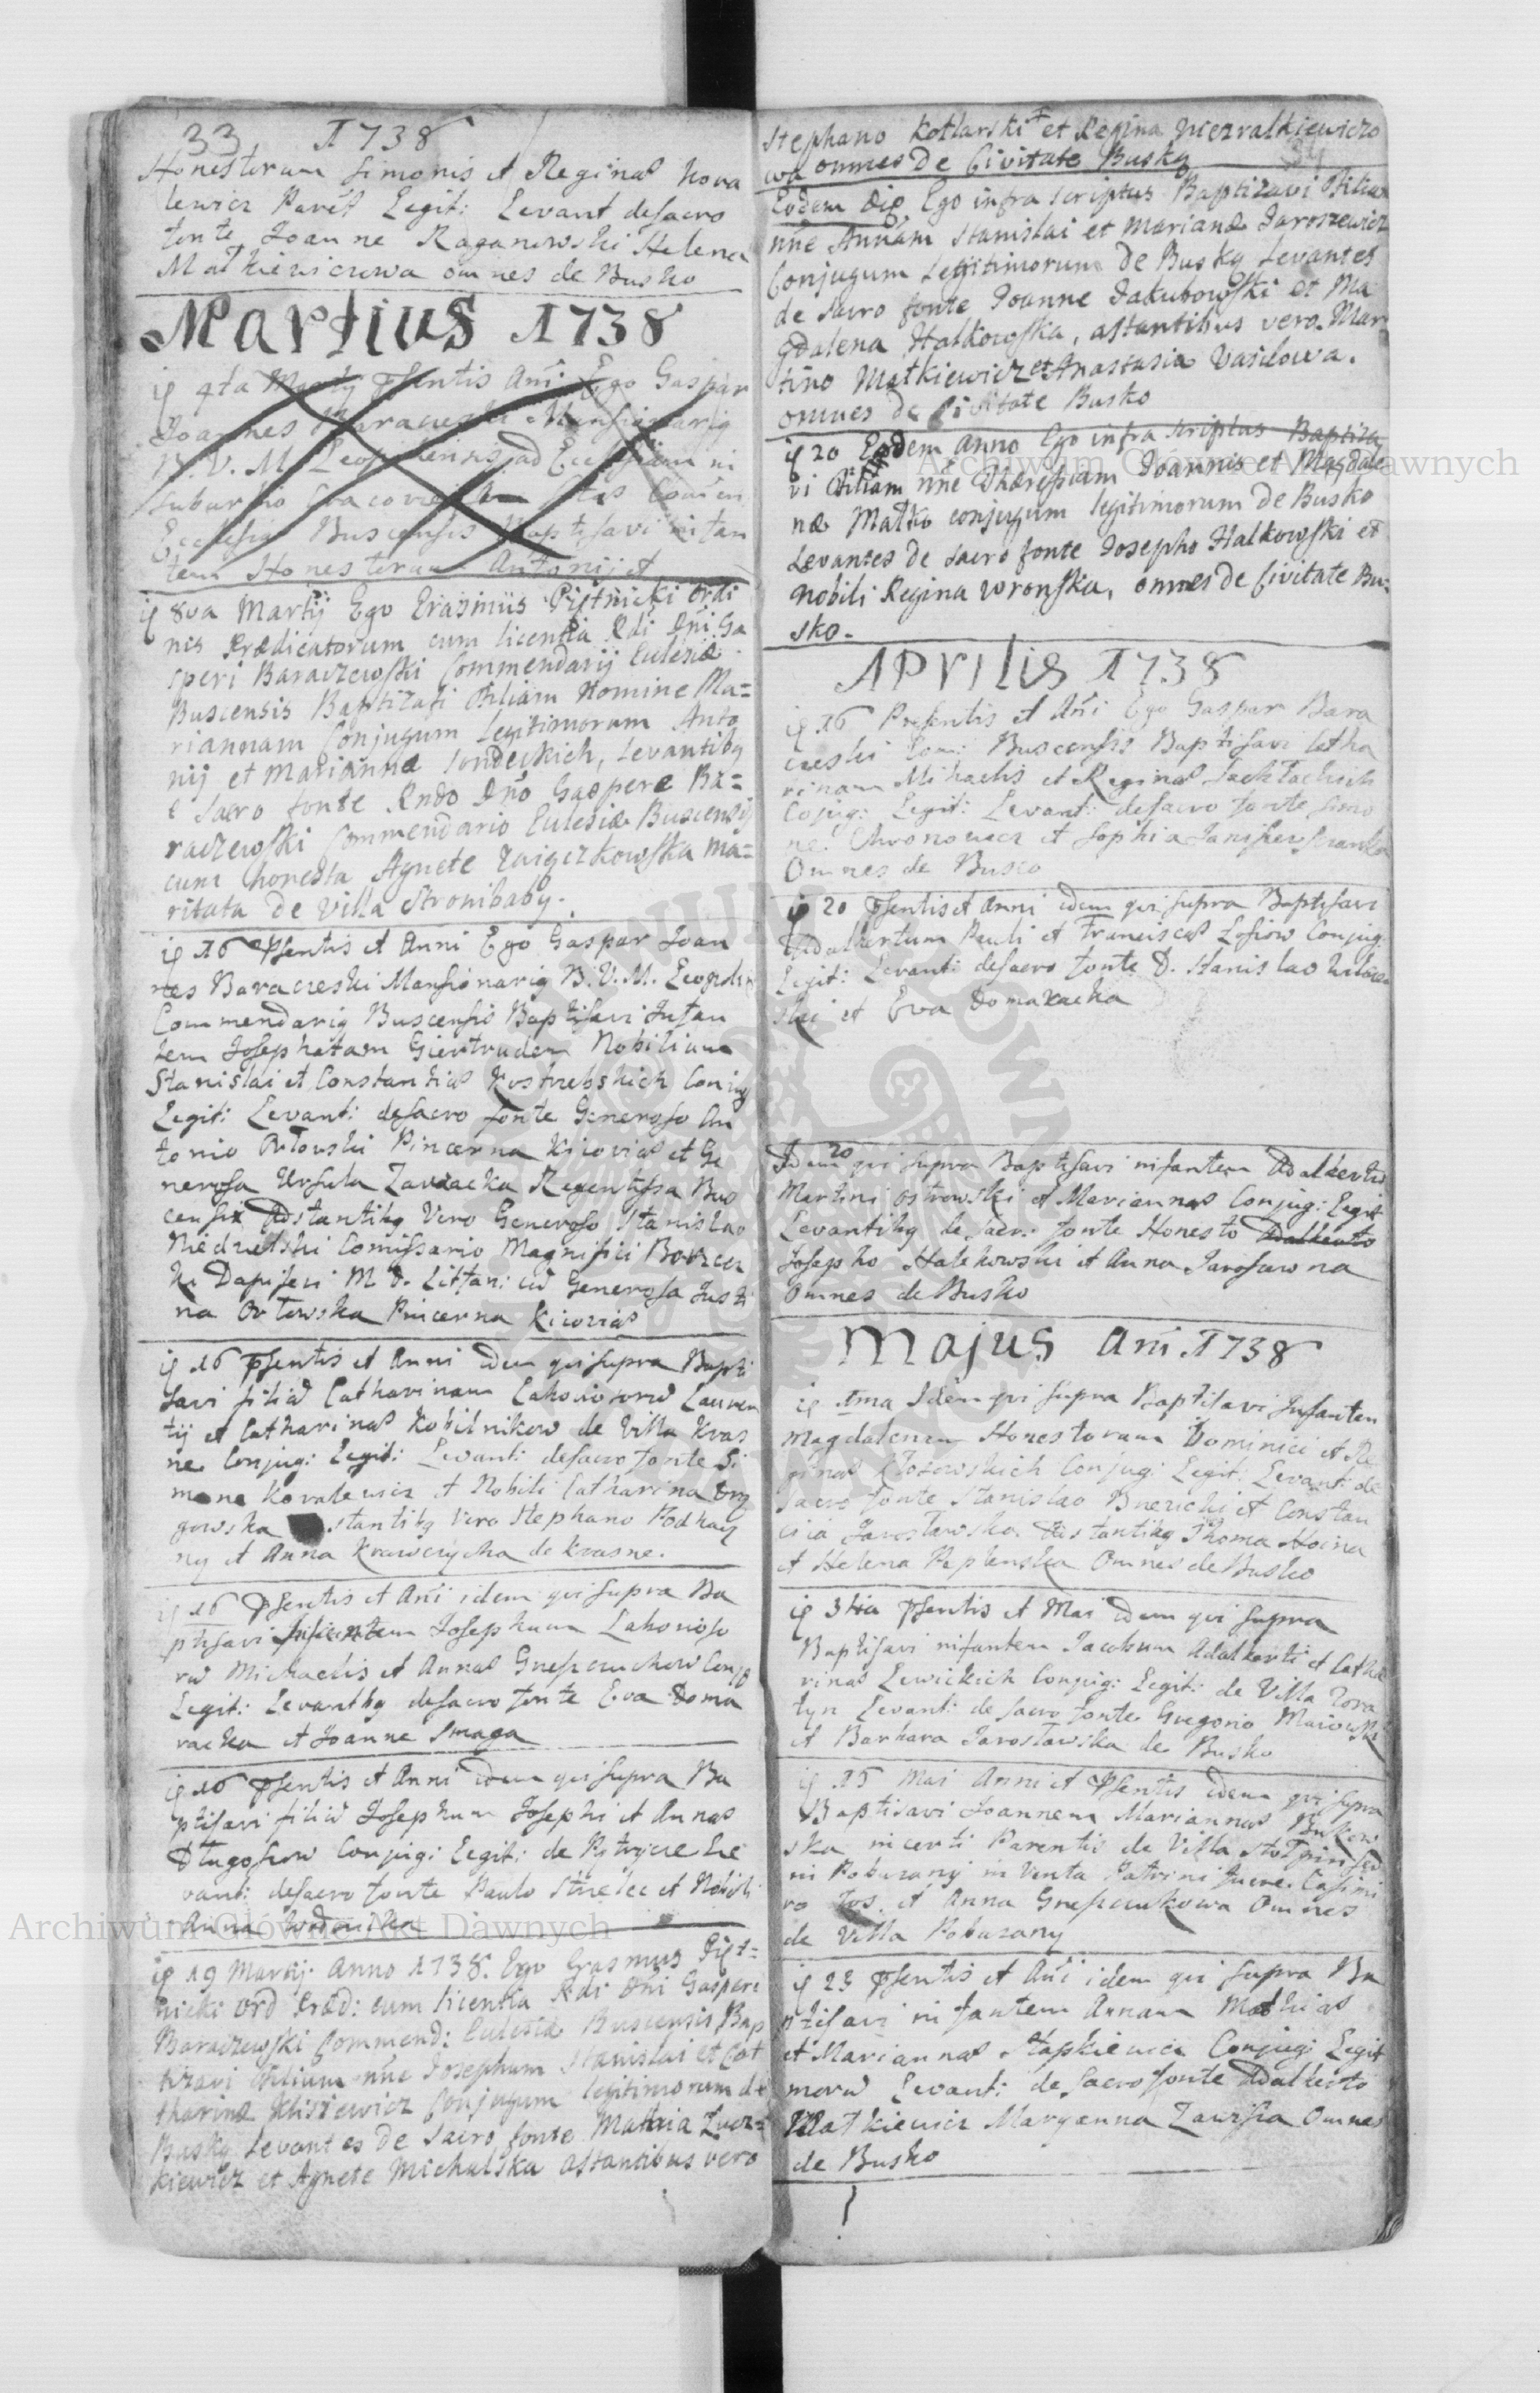 33 1738
Honestorum Simonis et Reginæ Kova
lewicz Parēt Legit: Levant de sacro
fonte Joanne Raganowski Helena
Matkiewiczowa omnes de Busko
Martius 1738
4ta Martij Pſentis Añi Ego Gaspar
Joannes Baraczeski Mansionariꝯ
B. V. M. Leopoliensis ad Ecclesiam in
suburbio Cracoviensi
Ecclesiæ Buscensis Baptisavi infan
tem Honestorum Antonij et
8va Martij Ego Erasmus Piętnicki Ordi
nis Prædicatorum cum licentia Rdi Dni Ga
speri Baraczewski Commendarij Eclesiæ
Buscensis Baptizavi Filiam Nomine Ma=
riannam Conjugum Legitimorum Anto
nij et Mariannæ Sondeckich, Levantibꝯ
e Sacro fonte Rndo Dño Gaspere Ba=
raczewski Commendario Eclesiæ Buscensis
cum honesta Agnete Zaigczkowska Ma=
ritata de Villa Stronibaby.
16 Pſentis et Anni Ego Gaspar Joan
nes Baraczeski Mansionariꝯ B. V. M. Leopoli
Commendariꝯ Buscensis Baptisavi Infan
tem Josephatam Giertrudem Nobilium
Stanislai et Constantiæ Kostrebskich Coniug
Legit: Levanti: de sacro fonte Generoso An
tonio Orłowski Pincerna Kijoviæ et Ge
nerosa Ursula Zawacka Regentissa Bus
censis Adstantibꝯ Vero Generoso Stanislao
Niedzielski Comissario Magnifici
Dapiferi M. D. Littan: cũ Generosa Justi
na Orłowska Pincerna Kiioviæ
16 Pſentis et Anni idem qui supra Bapti
savi filiã Catharinam Lahoriosorũ Lauren
tij et Catharinæ Kobilnikow de Villa Kras
ne Conjug: Legit: Levanti: de sacro fonte Si
mone Kovalewicz et Nobili Catharina
gowska stantibꝯ Vero Stephano Podhay
ny et Anna Krawczycha de Krasne.
16 Pſentis et Añi idem qui supra Ba
ptisavi infantem Josephum Lahorioso
rũ Michaelis et Annæ Gnepauchow Conjug
Legit: Levantibꝯ de sacro fonte Eva Doma
racka et Joanne Smaga
16 Pſentis et Anni idem qui supra Ba
ptisavi filiũ Josephum Josephi et Annæ
Długoszow Conjug: Legit: de Pẹtrycze Le
vant: de sacro fonte Paulo Strzelec et Nobili
Anna
19 Martij Anno 1738. Ego Erasmus Pięt=
nicki Ord Præd: cum licentia Rdi Dni Gasperi
Baraczewski Commend: Eclesiæ Buscensis Bap
tizavi Filium nñe Josephum Stanislai et Cat
tharinæ Klisiewicz Conjugum legitimorum de
Busko Levantes de Sacro fonte Mathia Łucz=
kiewicz et Agnete Michalska astantibus vero
Stephano Kotlarski et Regina
wa omnes De Civitate Busko
Eodem Die Ego infra scriptus Baptizavi Filiam
nñe Annam Stanislai et Mariannæ Jaroszewicz
Conjugum Legitimorum de Busko Levantes
de Sacro fonte Joanne Jakubowski et Ma
gdalena Halkowska, astantibus vero Mar
tino Matkiewicz et Anastasia Vasilowa.
omnes de Civitate Busko
20 Eodem anno Ego infra scriptus Baptiza
vi Filiam nñe Theressiam Joannis et Magdale
næ Matko conjugum legitimorum de Busko
Levantes de sacro fonte Josepho Halkowski et
Nobili Regina Wronska, omnes de Civitate Bu-
sko.
Aprilis 1738
16 Presentis et Añi Ego Gaspar Bara
czeski Com: Buscensis Baptisavi Catha
rinam Michaelis et Reginæ
Cojug: Legit: Levant: de sacro fonte Simo
ne Chronowicz et Sophia
Omnes de Busco
20 Pſentis et Anni idem qui supra Baptisavi
Adalbertum Pauli et Franciscæ Losiow Conjug:
Legit: Levanti de sacro fonte D. Stanislao
ski et Eva Domaracka
Idem 20 qui supra Baptisavi infantem Adalbertũ
Martini Ostrowski et Mariannæ Conjug: Legit
Levantibꝯ de sacro fonte Honesto Adalberto
Josepho Halekowski et Anna Jarosowna
Omnes de Busko
Majus Añi 1738
1ma Idem qui supra Baptisavi Infantem
Magdalenam Honestorum Dominici et Re
ginæ Conjug: Legit: Levant: de
Sacro fonte Stanislao et Constan
cia Jarosławska Astantibꝯ Thoma Hoina
et Helena Omnes de Busko
3tia Pſentis et Mai idem qui supra
Baptisavi infantem Jacobum Adalberti et Catha
rinæ Lewickich Conjug: Legit: de Villa
tyn Levant: de sacro fonte Gregorio Maiowski
et Barbara Jarosławska de Busko
15 Mai Anni et Pſentis idem qui supra
Baptisavi Joannem Mariannæ Bukow
ska incerti Parentis de Villa
ni Pobuzany in Venta Patrini fuere Casimi
ro et Anna Gnepaukowa Omnes
de Villa Pobuzany
23 Pſentis et Añi idem qui supra Ba
ptisavi infantem Annam Mathiæ
et Mariannæ Słapkiewicz Conjug: Legit
morũ Levant: de sacro fonte Adalberto
Matkiewicz Maryanna Zawisza Omnes
de Busko
Archiwum Główne Akt Dawnych
Archiwum Główne Akt Dawnych